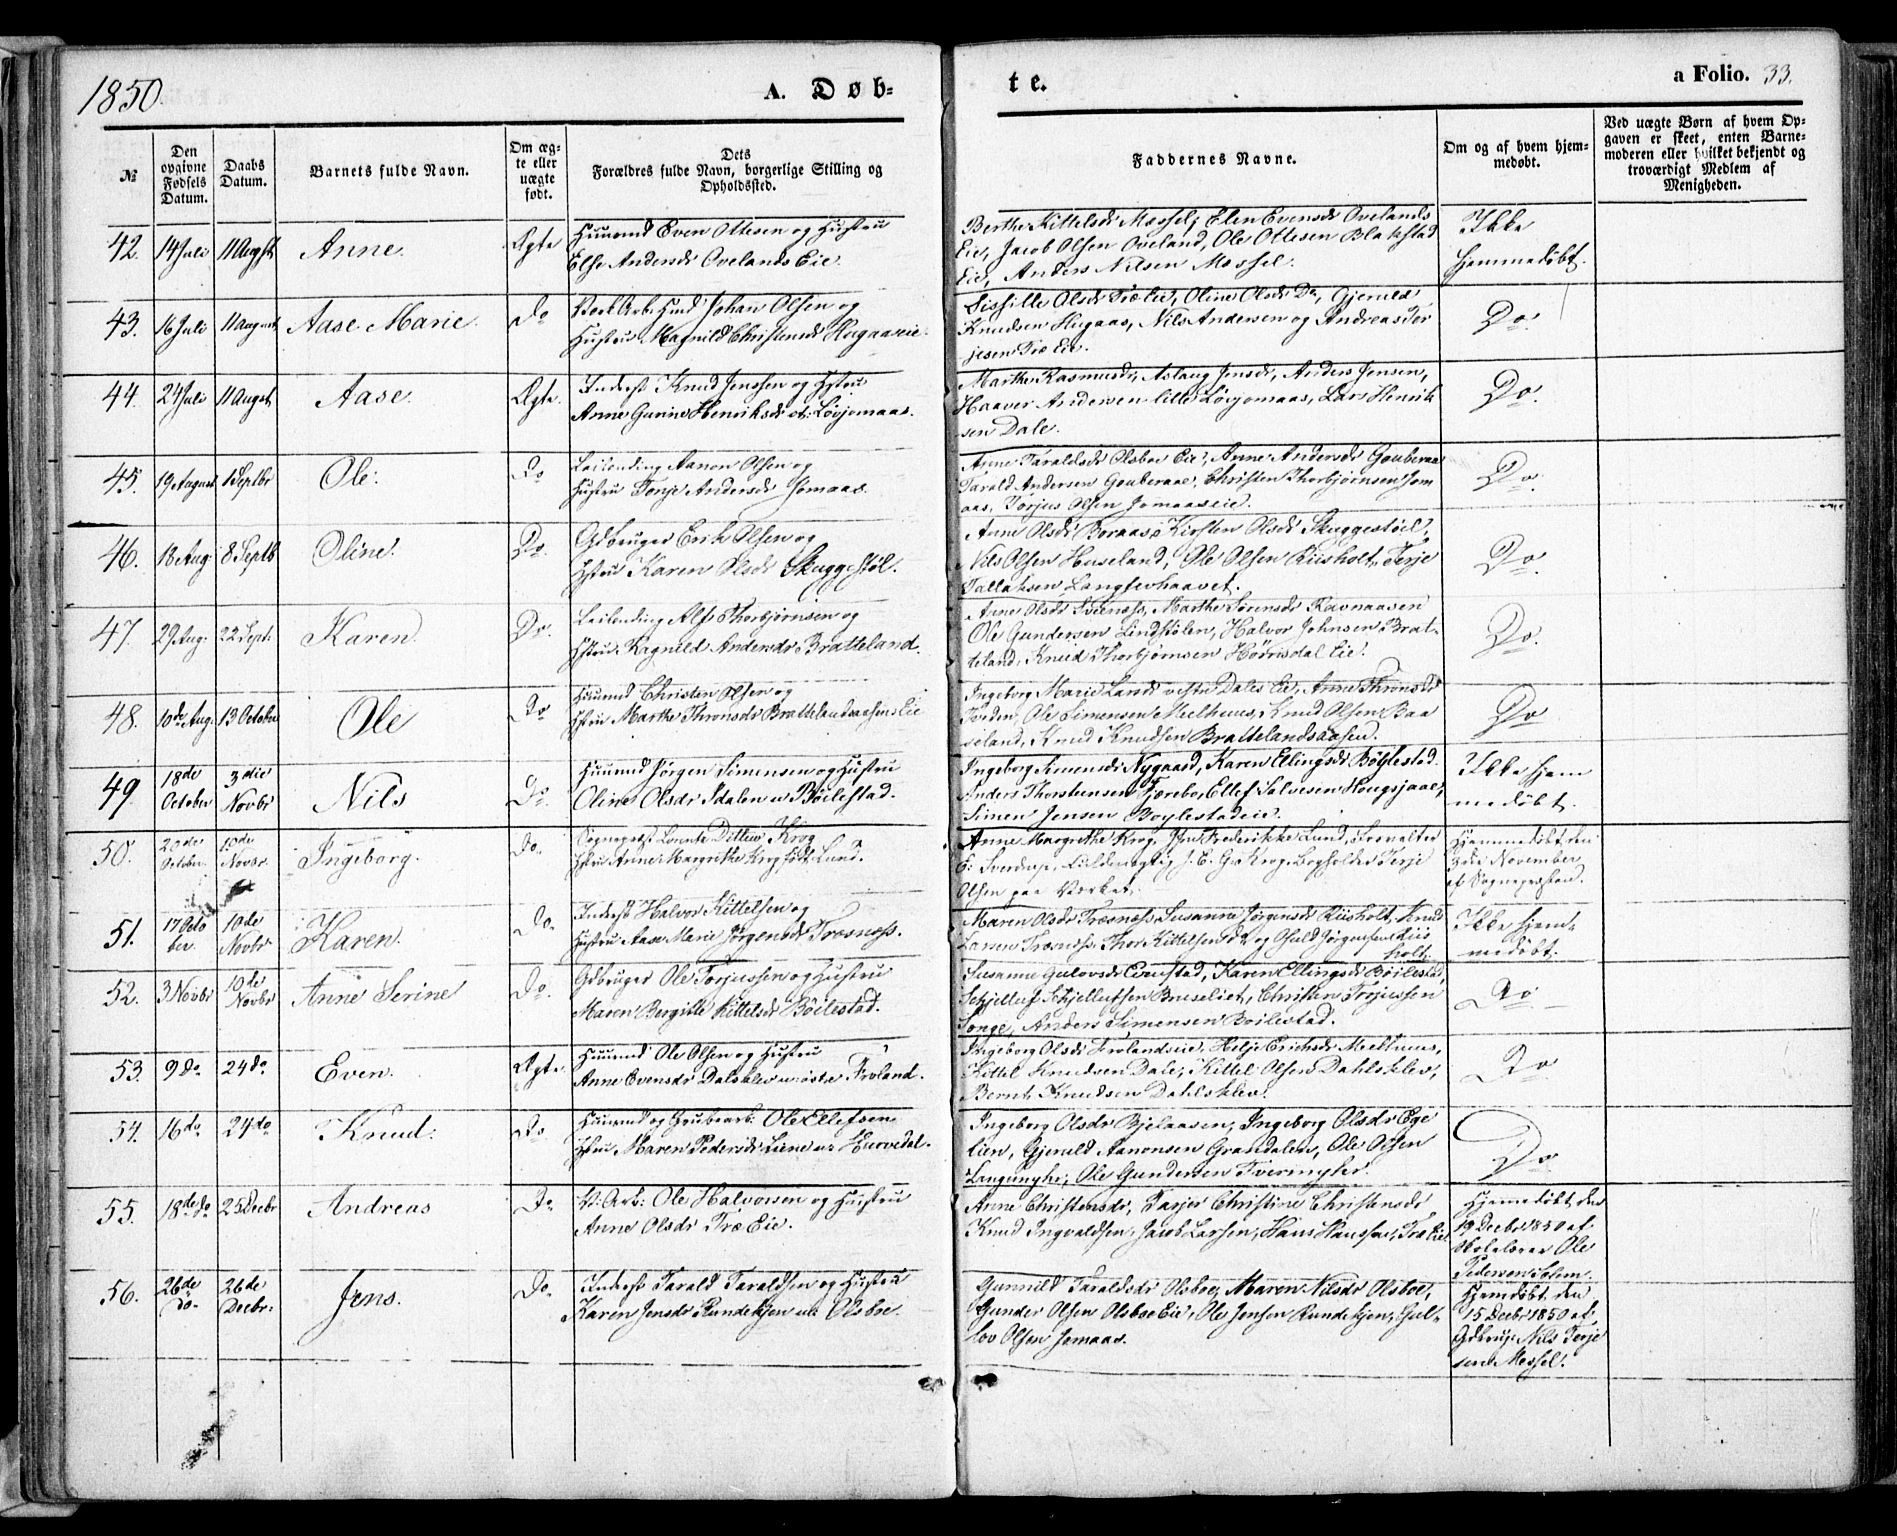 1850.
A. Døb-
te.
a Folio. 33.
№
Den opgivne Fødsels Datum.
Daabs Datum.
Barnets fulde Navn.
Om ægte eller uægte født.
Dets Forældres fulde Navn, borgerlige Stilling og Opholdssted.
Faddernes Navne.
Om og af hvem hjemmedøbt.
Ved uægte Børn af hvem Opgaven er skeet, enten Barnemoderen eller hvilket bekjendt og troværdigt Medlem af Menigheden.
42. 14 Juli 11 Augst Anne. Ægte Huusmd Even Ottesen og Hustru
Else Andersdr Ovelands Eie.
Berthe Kittelsdr Messel, Elen Evensdr Ovelands
Eie, Jacob Olsen Oveland, Ole Ottesen Blakstad
Eie, Anders Nilsen Messel.
Ikke
Hjemmedøbt.
43. 16 Juli 11 August Aase Marie. Do Verk Arb. Hmd Johan Olsen og
Hustru Magnild Christensdr Hugaaseie.
Sissille Olsdr Træ Eie, Oline Olsdr Do, Gjeruld
Knudsen Hugaas, Nils Andersen og Andreas Ter
jesen Træ Eie.
Do.
44. 24 Juli 11 Augst Aase. Ægte. Inderst Knud Jensen og Hstru
Anne Gunne Henriksdr st. Løvjomaas.
Marthe Rasmusdr, Aslaug Jensdr, Anders Jensen,
Haaver Andersen lille Løvjomaas, Lars Henrik
sen Dale.
Do.
45. 19 August 1 Septbr Ole. Do Leilending Aanon Olsen og
Hustru Tonje Andersdr Jomaas.
Anne Taraldsdr Olsboe Eie, Anne Andersdr Gouberaae
Tarald Andersen Gouberaae, Christen Thorbjørnsen Jom
aas, Torjus Olsen Jomaaseie.
Do.
46. 18 Aug 8 Septb Oline. Do. Gdbruger Erik Olsen og
Hstru Karen Olsdr Skuggestøl.
Anne Olsdr Boraas, Kirsten Olsdr Skuggestøel,
Nils Olsen Huseland, Ole Olsen Riisholt, Terje
Tallaksen Langsevhaavet.
Do
47. 29 Aug. 22 Sept. Karen. Do. Leilending Alf Thorbjørnsen og
Hstru Ragnild Andersdr Bratteland.
Anne Olsdr Svenness, Marthe Sørensdr Ravnaasen
Ole Gundersen Lindstølen, Halvor Johnsen Brat-
teland, Knud Thorbjørnsen Hørrisdal Eie.
Do.
48. 10de Aug. 13 October Ole Do Huusmd Christen Olsen og
Hstru Marthe Thronsdr Brattelandsaasens Eie
Ingeborg Marie Larsdr vestre Dales Eie, Anne Thronsdr
Ole Simensen Mielhuus, Knud Olsen Baa
seland, Knud Knudsen Brattelandsaasen.
Do
49. 18de October 3die Novbr Nils Do. Huusmd Jörgen Simensen og Hustru
Oline Olsdr Dalen u. Böilestad.
Ingeborg Simensdr Nygaard, Karen Ellingsdr Bøylestad.
Anders Thorstensen Tjærebo, Ellef Salvesen Hougsjaae,
Simen Jensen Boylestadeie.
Ikke Hjem
medøbt.
50. 20de October. 10de Novbr. Ingeborg. Do. Sognepræst Lorents Ditlew Krog
Hstru Anne Margrethe Krog født Lund.
Anne Margrethe Krog, Jfru Frederikke Lund, Forvalter
E. Sverdrup, Fuldmægtig J. E. G. Krog, Bogholder Terje
Olsen paa Værket.
Hjemmedøbt den
3die November
af Sognepræsten.
51. 17 Octo ber. 10de Novbr Karen. Do. Inderst Halvor Kittelsen og
Hustru Aase Marie Jørgensdr Træsness.
Maren Olsdr Træsness, Susanne Jørgensdr Riisholt, Knud
Larsen Træsness, Thor Kittelsen do og Gjuld Jørgensen Riis
holt.
Ikke Hjem-
medøbt.
52. 3 Novbr 10de Novbr Anne Serine Do. Gdbruger Ole Torjussen og Hustru
Maren Bergitte Kittelsdr Böilestad.
Susanne Gulovsdr Evenstad, Karen Ellingsdr Böilestad,
Schjelluf Schjellufsen Bruseliet, Christen Torjussen
Songe, Anders Simensen Boilestad.
Do
53. 9 do 24 do Even. Ægte. Huusmd Ole Olsen og Hustru
Anne Evensdr Dalsklev u. østre Froland.
Ingeborg Olsdr Frolandseie, Helje Erichsdr Mielhuus,
Kittel Knudsen Dale, Kittel Olsen Dahlsklev,
Bernt Knudsen Dahlsklev.
Do
54. 16 do 24 do Knud. Do Huusmd og Grubearb. Ole Ellefsen
Hstru Maren Pedersdr Liene u. Hurvedal.
Ingeborg Olsdr Bjelaasen, Ingeborg Olsdr Ege
lien, Gjeruld Aanonsen Grasdalen, Ole Olsen
Langmyhr, Ole Gundersen Tvermyhr.
Do
55. 18de do 25 Decbr Andreas Do V. Arb. Ole Halvorsen og Hustru
Anne Olsdr Træ Eie.
Anne Christensdr, Tarjer Christine Christensdr
Knud Ingvaldsen, Jacob Larsen, Hans Hanssen, Træ Eie
Hjemmedøbt den
19 Decbr 1850 af
Skolelærer Ole
Pedersen Solem.
56. 26de do. 26de Decbr. Jens. Do. Inderst Tarald Taraldsen og Hustru
Karen Jensdr Rundekjen u. Olsboe
Gunnild Taraldsdr Olsboe, Maren Nilsdr Olsboe,
Gunder Olsen Olsboe Eie, Ole Jensen Rundekjen, Gul-
lov Olsen Jomaas.
Hjemdöbt den
15 Decbr 1850 af
Gdbrug. Nils Terje
sen Messel.